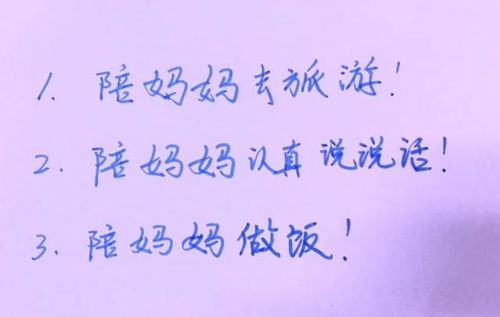 1. 陪妈妈去旅游!
2. 陪妈妈认真说说话!
3. 陪妈妈做饭!